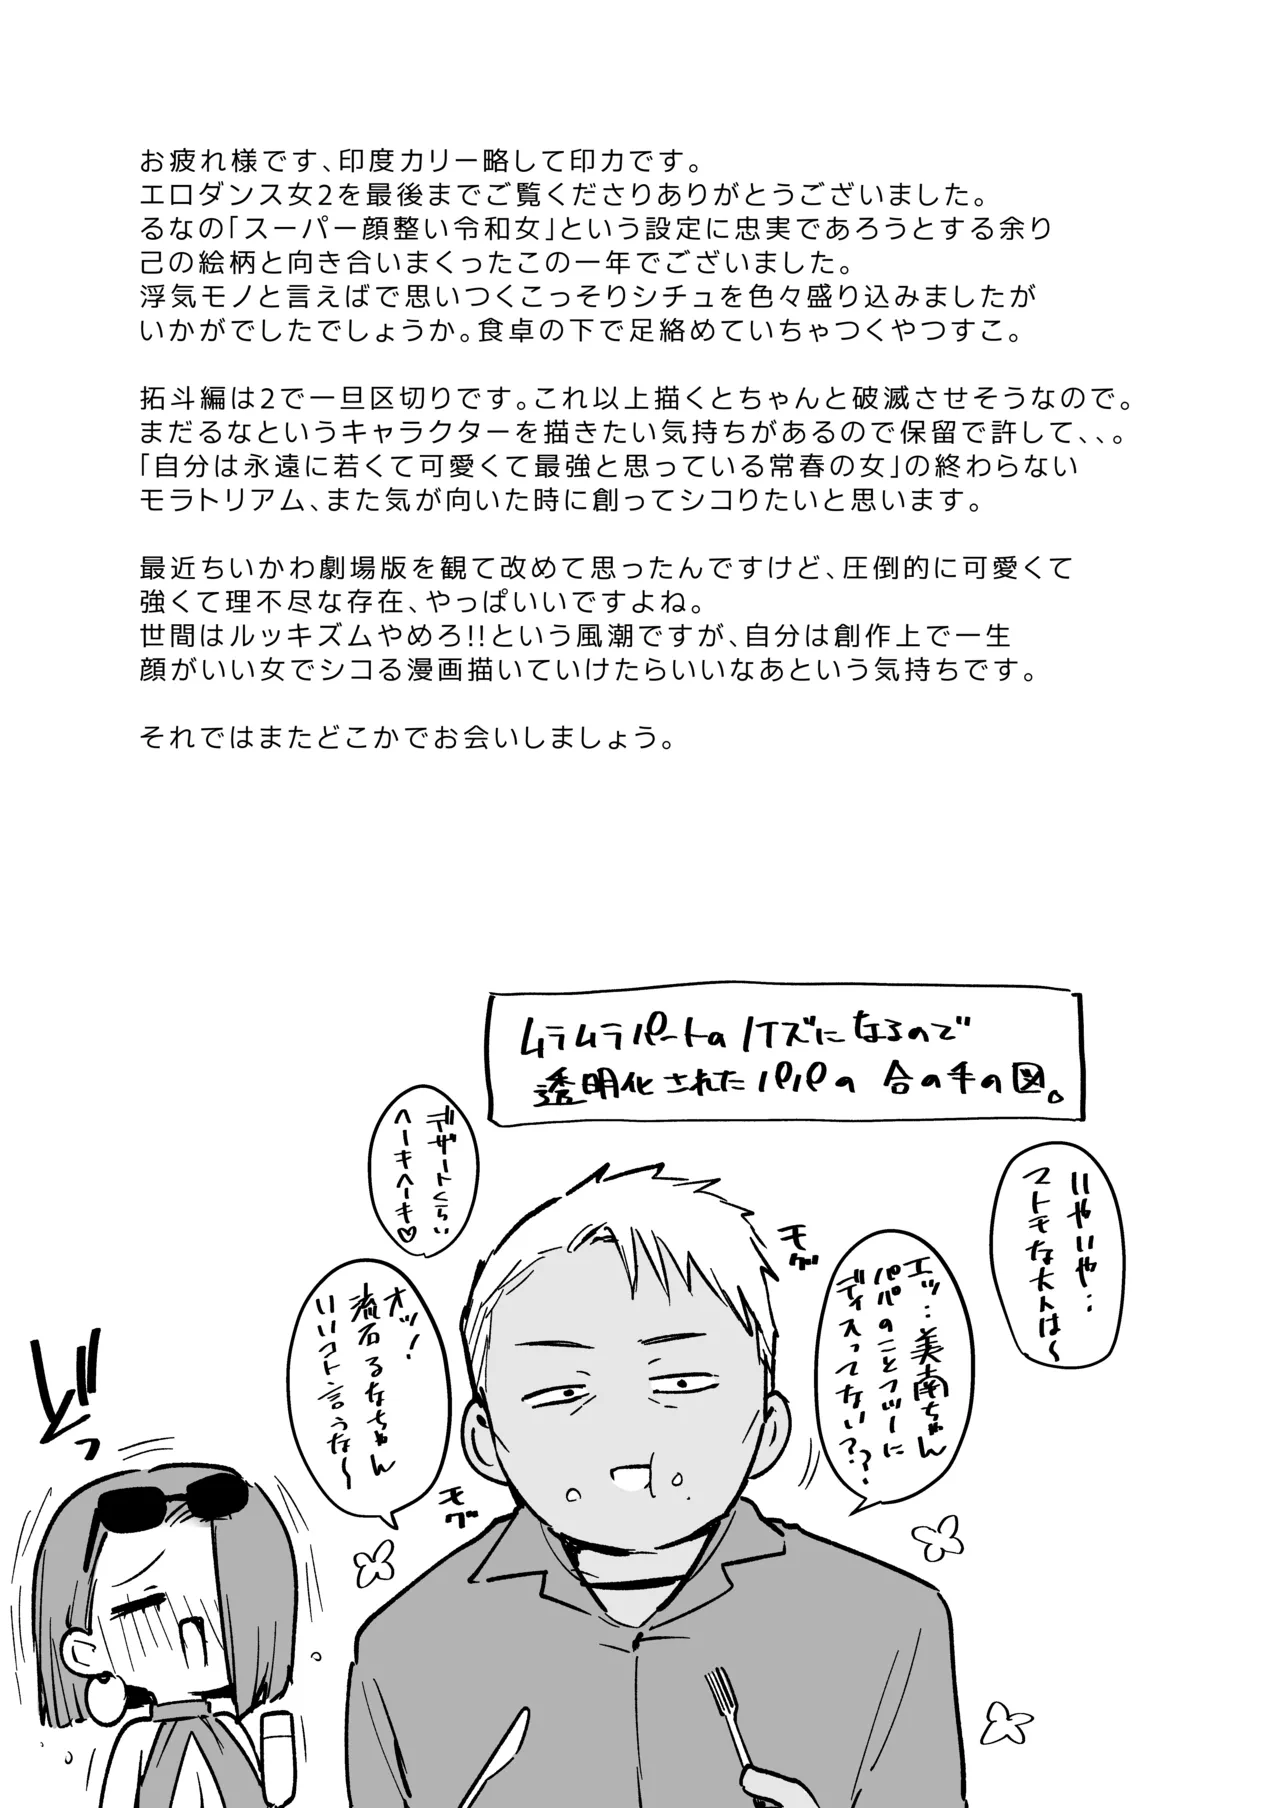 お疲れ様です、印度カリー略して印カです。
エロダンス女2を最後までご覧くださりありがとうございました。
るなの｢スーパー顔整い令和女｣という設定に忠実であろうとする余り
己の絵柄と向き合いまくったこの一年でございました。
浮気モノと言えばで思いつくこっそりシチュを色々盛り込みましたが
いかがでしたでしょうか。食卓の下で足絡めていちゃつくやつすこ。
拓斗編は2で一旦区切りです。これ以上描くとちゃんと破滅させそうなので。
まだるなというキャラクターを描きたい気持ちがあるので保留で許して、、。
｢自分は永遠に若くて可愛くて最強と思っている常春の女｣の終わらない
モラトリアム、また気が向いた時に創ってシコりたいと思います。
最近ちいかわ劇場版を観て改めて思ったんですけど、圧倒的に可愛くて
強くて理不尽な存在、やっぱいいですよね。
世間はルッキズムやめろ!!という風潮ですが、自分は創作上で一生
顔がいい女でシコる漫画描いていけたらいいなあという気持ちです。
それではまたどこかでお会いしましょう。
ムラムラパートのノイズになるので
透明化されたパパの合の手の図。
いやいや…
マトモな大人は〜
デザートくらい
ヘーキヘーキ♡
モグ
エッ…美南ちゃん
パパのことフツーに
ディスってない??
オッ!
流石るなちゃん
いいコト言うな〜
モグ
ビッ